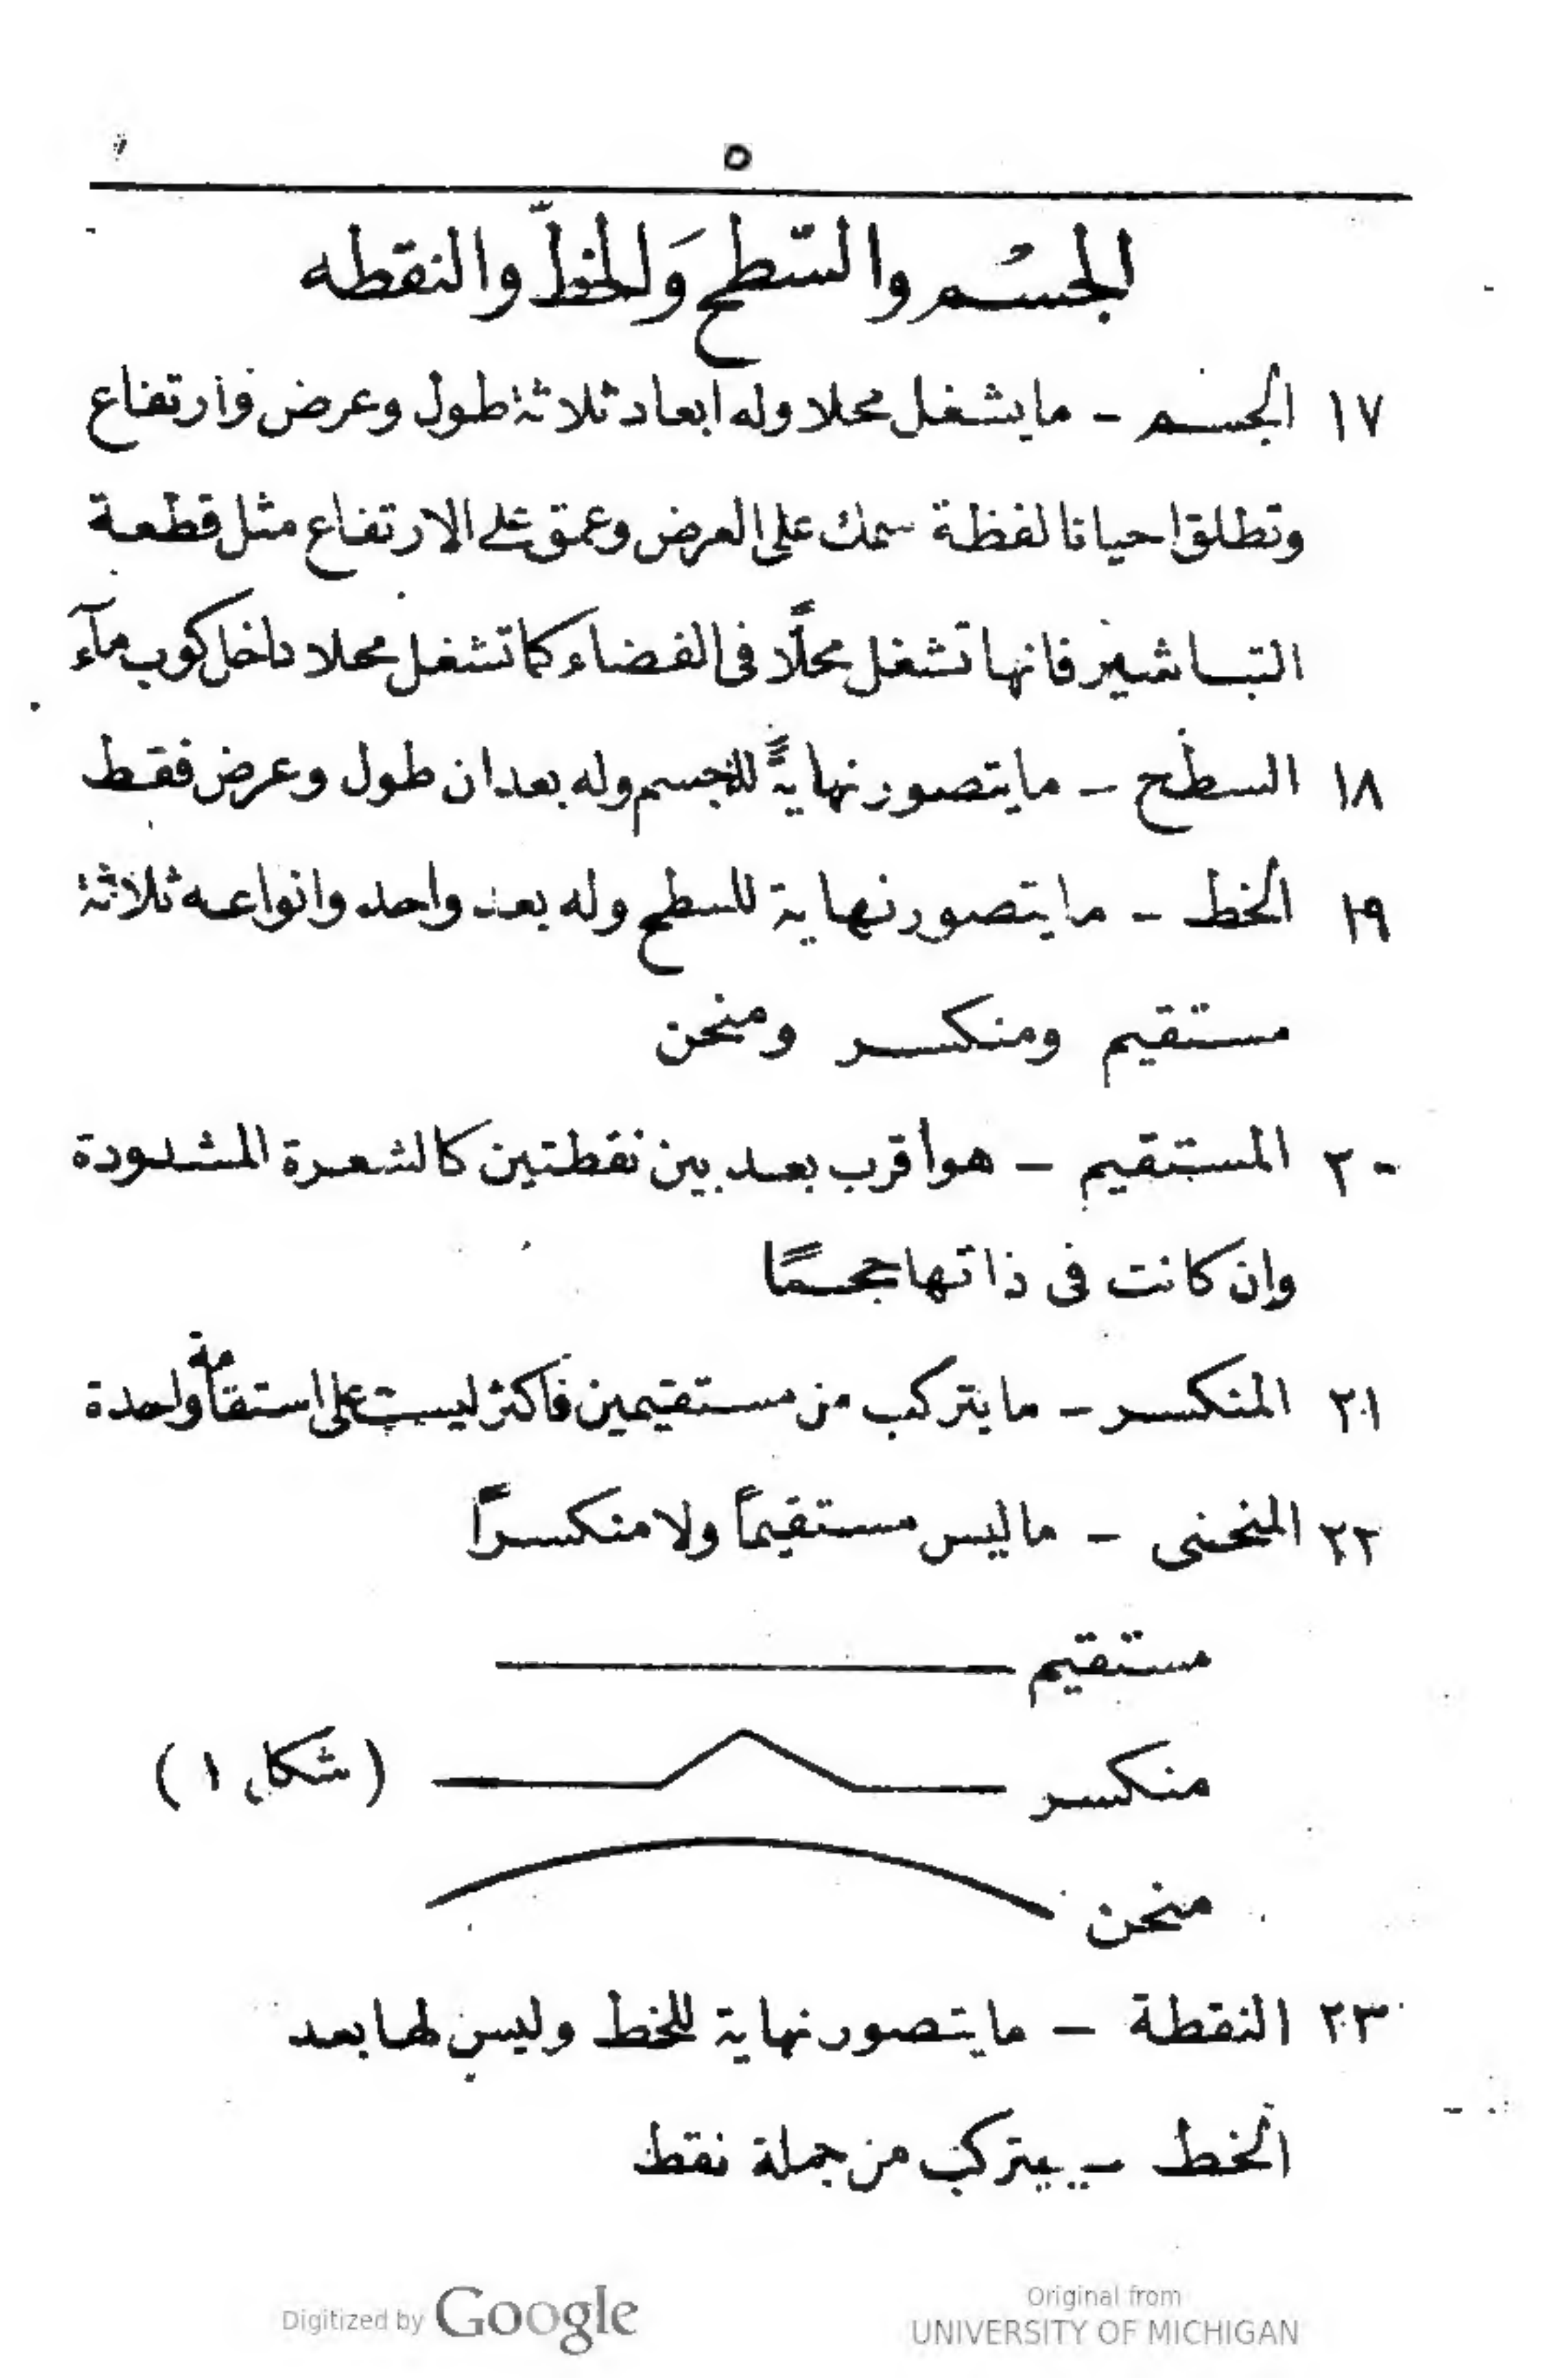 ٥
الجسُم والسّطح وَالخطّ والنقطه
١٧ الجسم - مايشغل محلا وله ابعاد ثلاثة طول وعرض وارتفاع
وتطلق احيانا لفظة سمك على العرض وعمق على الارتفاع مثل قطعة
التباشير فانها تشغل محلًّا فى الفضاء كما تشغل محلا داخل كوب مآء
١٨ السطح - مايتصور نهايةً للجسم وله بعدان طول وعرض فقط
١٩ الخط - مايتصور نهاية للسطح وله بعد واحد وانواعه ثلاثة
مستقيم ومنكسر ومنحن
٢٠ المستقيم - هو أقرب بعد بين نقطتين كالشعرة المشدودة
وان كانت فى ذاتها حجمًا
٢١ المنكسر - مايتركب من مستقيمين فاكثر ليست على استقامة واحدة
٢٢ المنحنى - ماليس مستقيماً ولا منكسراً
مستقيم
منكسر (شكل ١)
منحن
٢٣ النقطة - مايتصور نهاية للخط وليس لها بعد
الخط - يتركب من جملة نقط
Digitized by Google
Original from
UNIVERSITY OF MICHIGAN